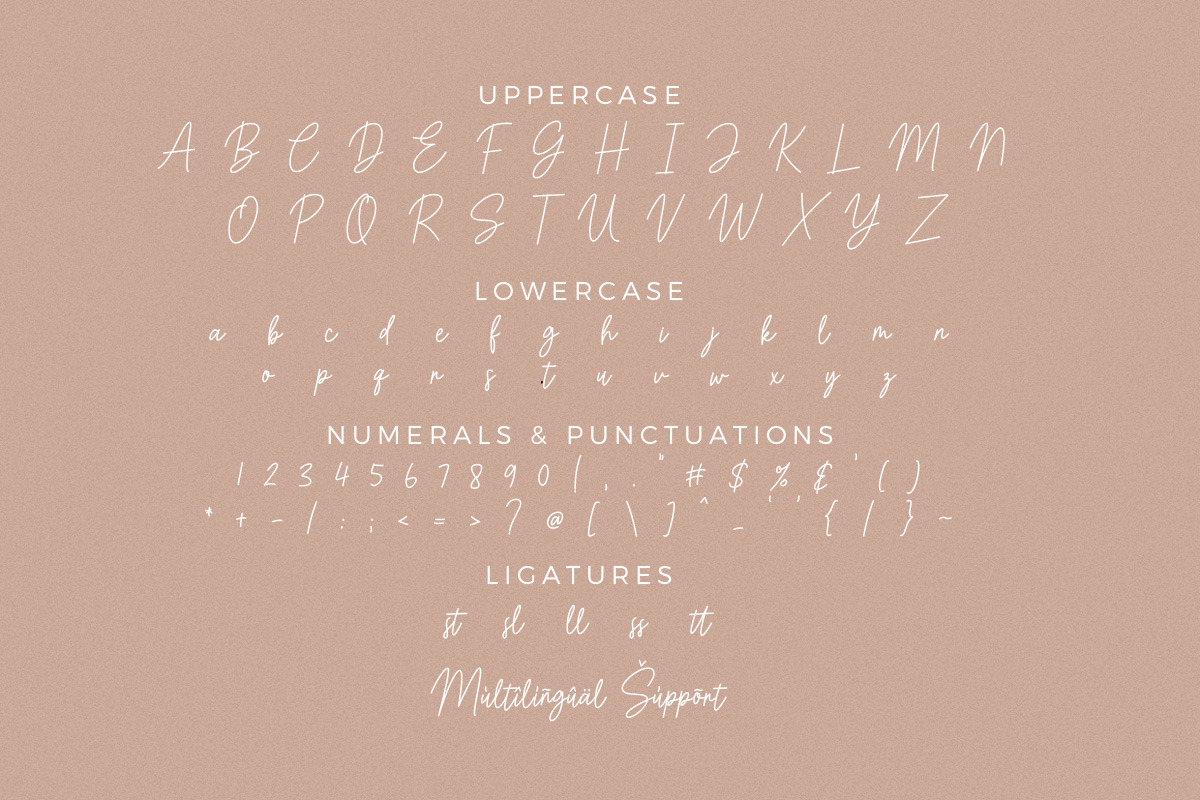 UPPERCASE
A B C D E F G H I J K L M N
O P Q R S T U V W X Y Z
LOWERCASE
a b c d e f g h i j k l m n
o p q r s t u v w x y z
NUMERALS & PUNCTUATIONS
1 2 3 4 5 6 7 8 9 0 | , . " # $ % & ' ( )
* + - / : ; < = > ? @ [ \ ] ^ _ ' ' { / } ~
LIGATURES
st sl ll ss tt
Múltîlíñgûäl Šúppõrt